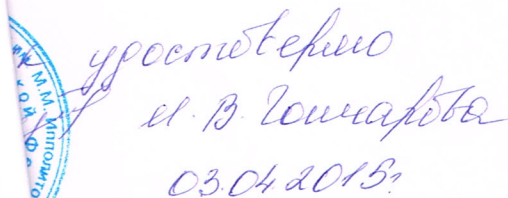 удостоверяю
И. В. Гончарова
03.04.2015г
М.М. Ипполито